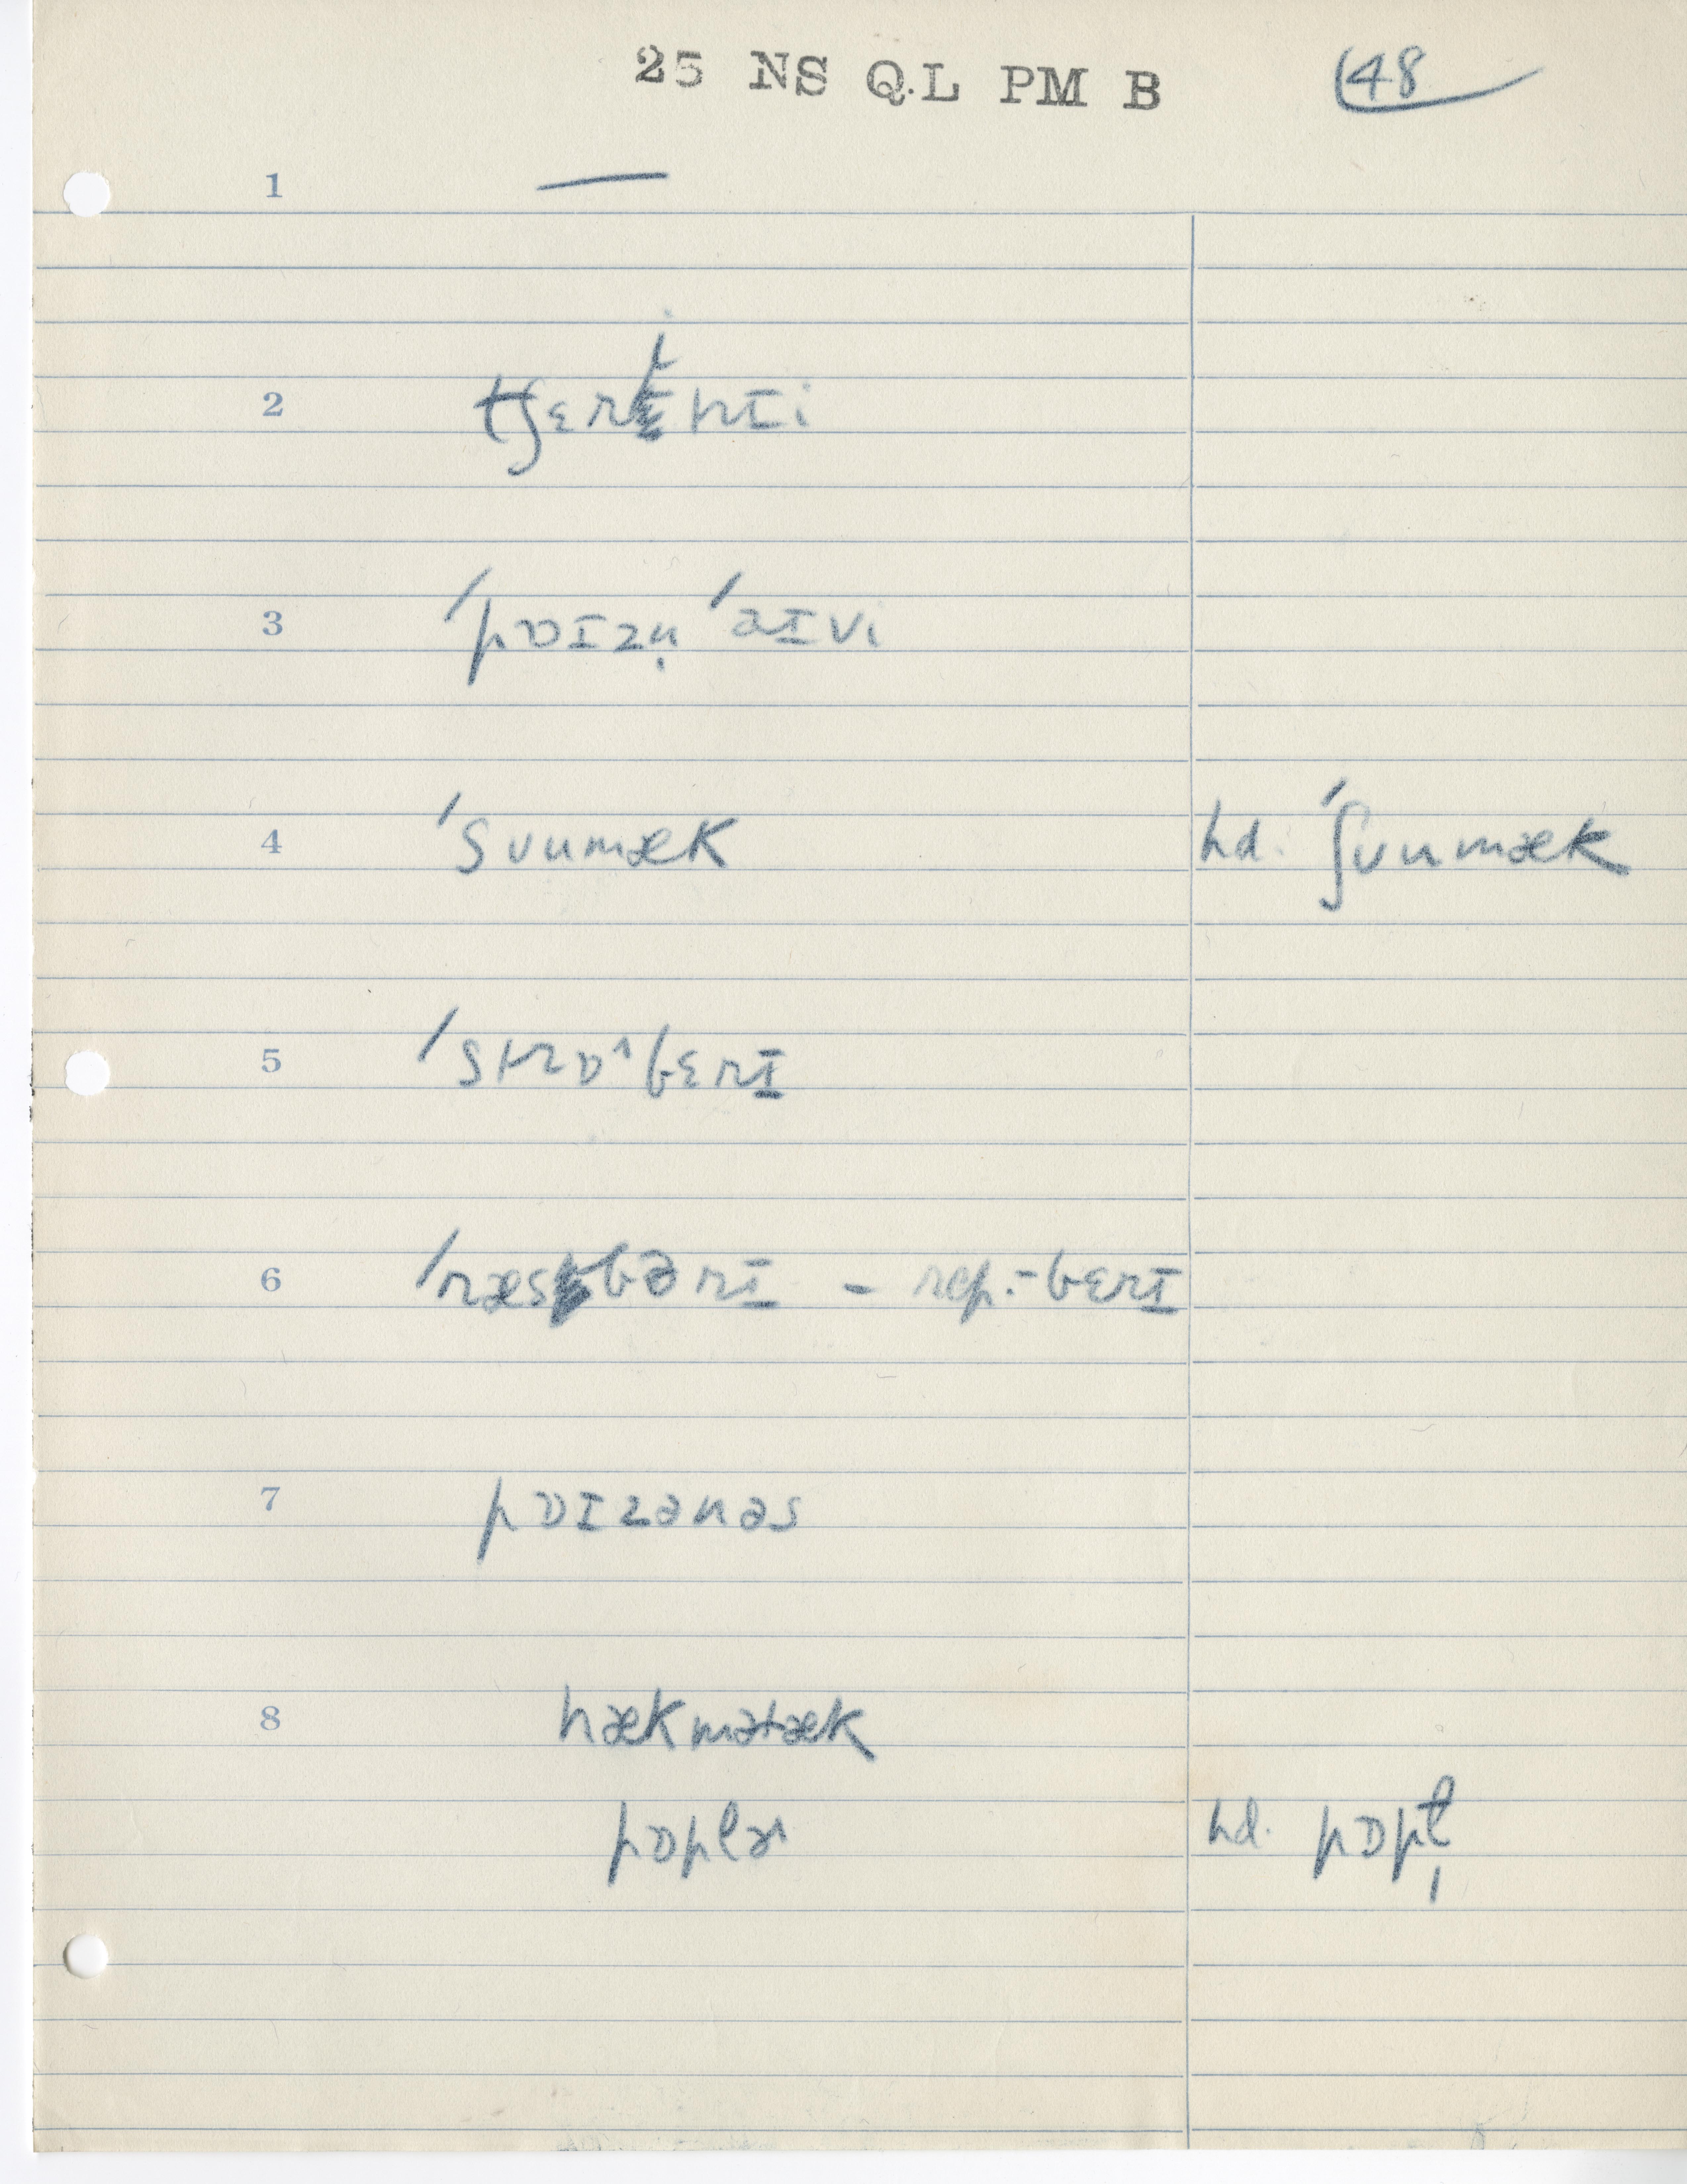 25 NS Q.L PM B 48
1 —
2 tʃɛrtrɪi
3 ˈpɒɪzn̩ ˈaɪvi
4 ˈsuumæk hd. ˈʃuumæk
5 ˈstrɒ^bɛrɪ
6 ˈræsbərɪ - rep.-bɛrɪ
7 pɒɪzənəs
8 hækmətæk
pɒplɚ hd. pɒpl̩